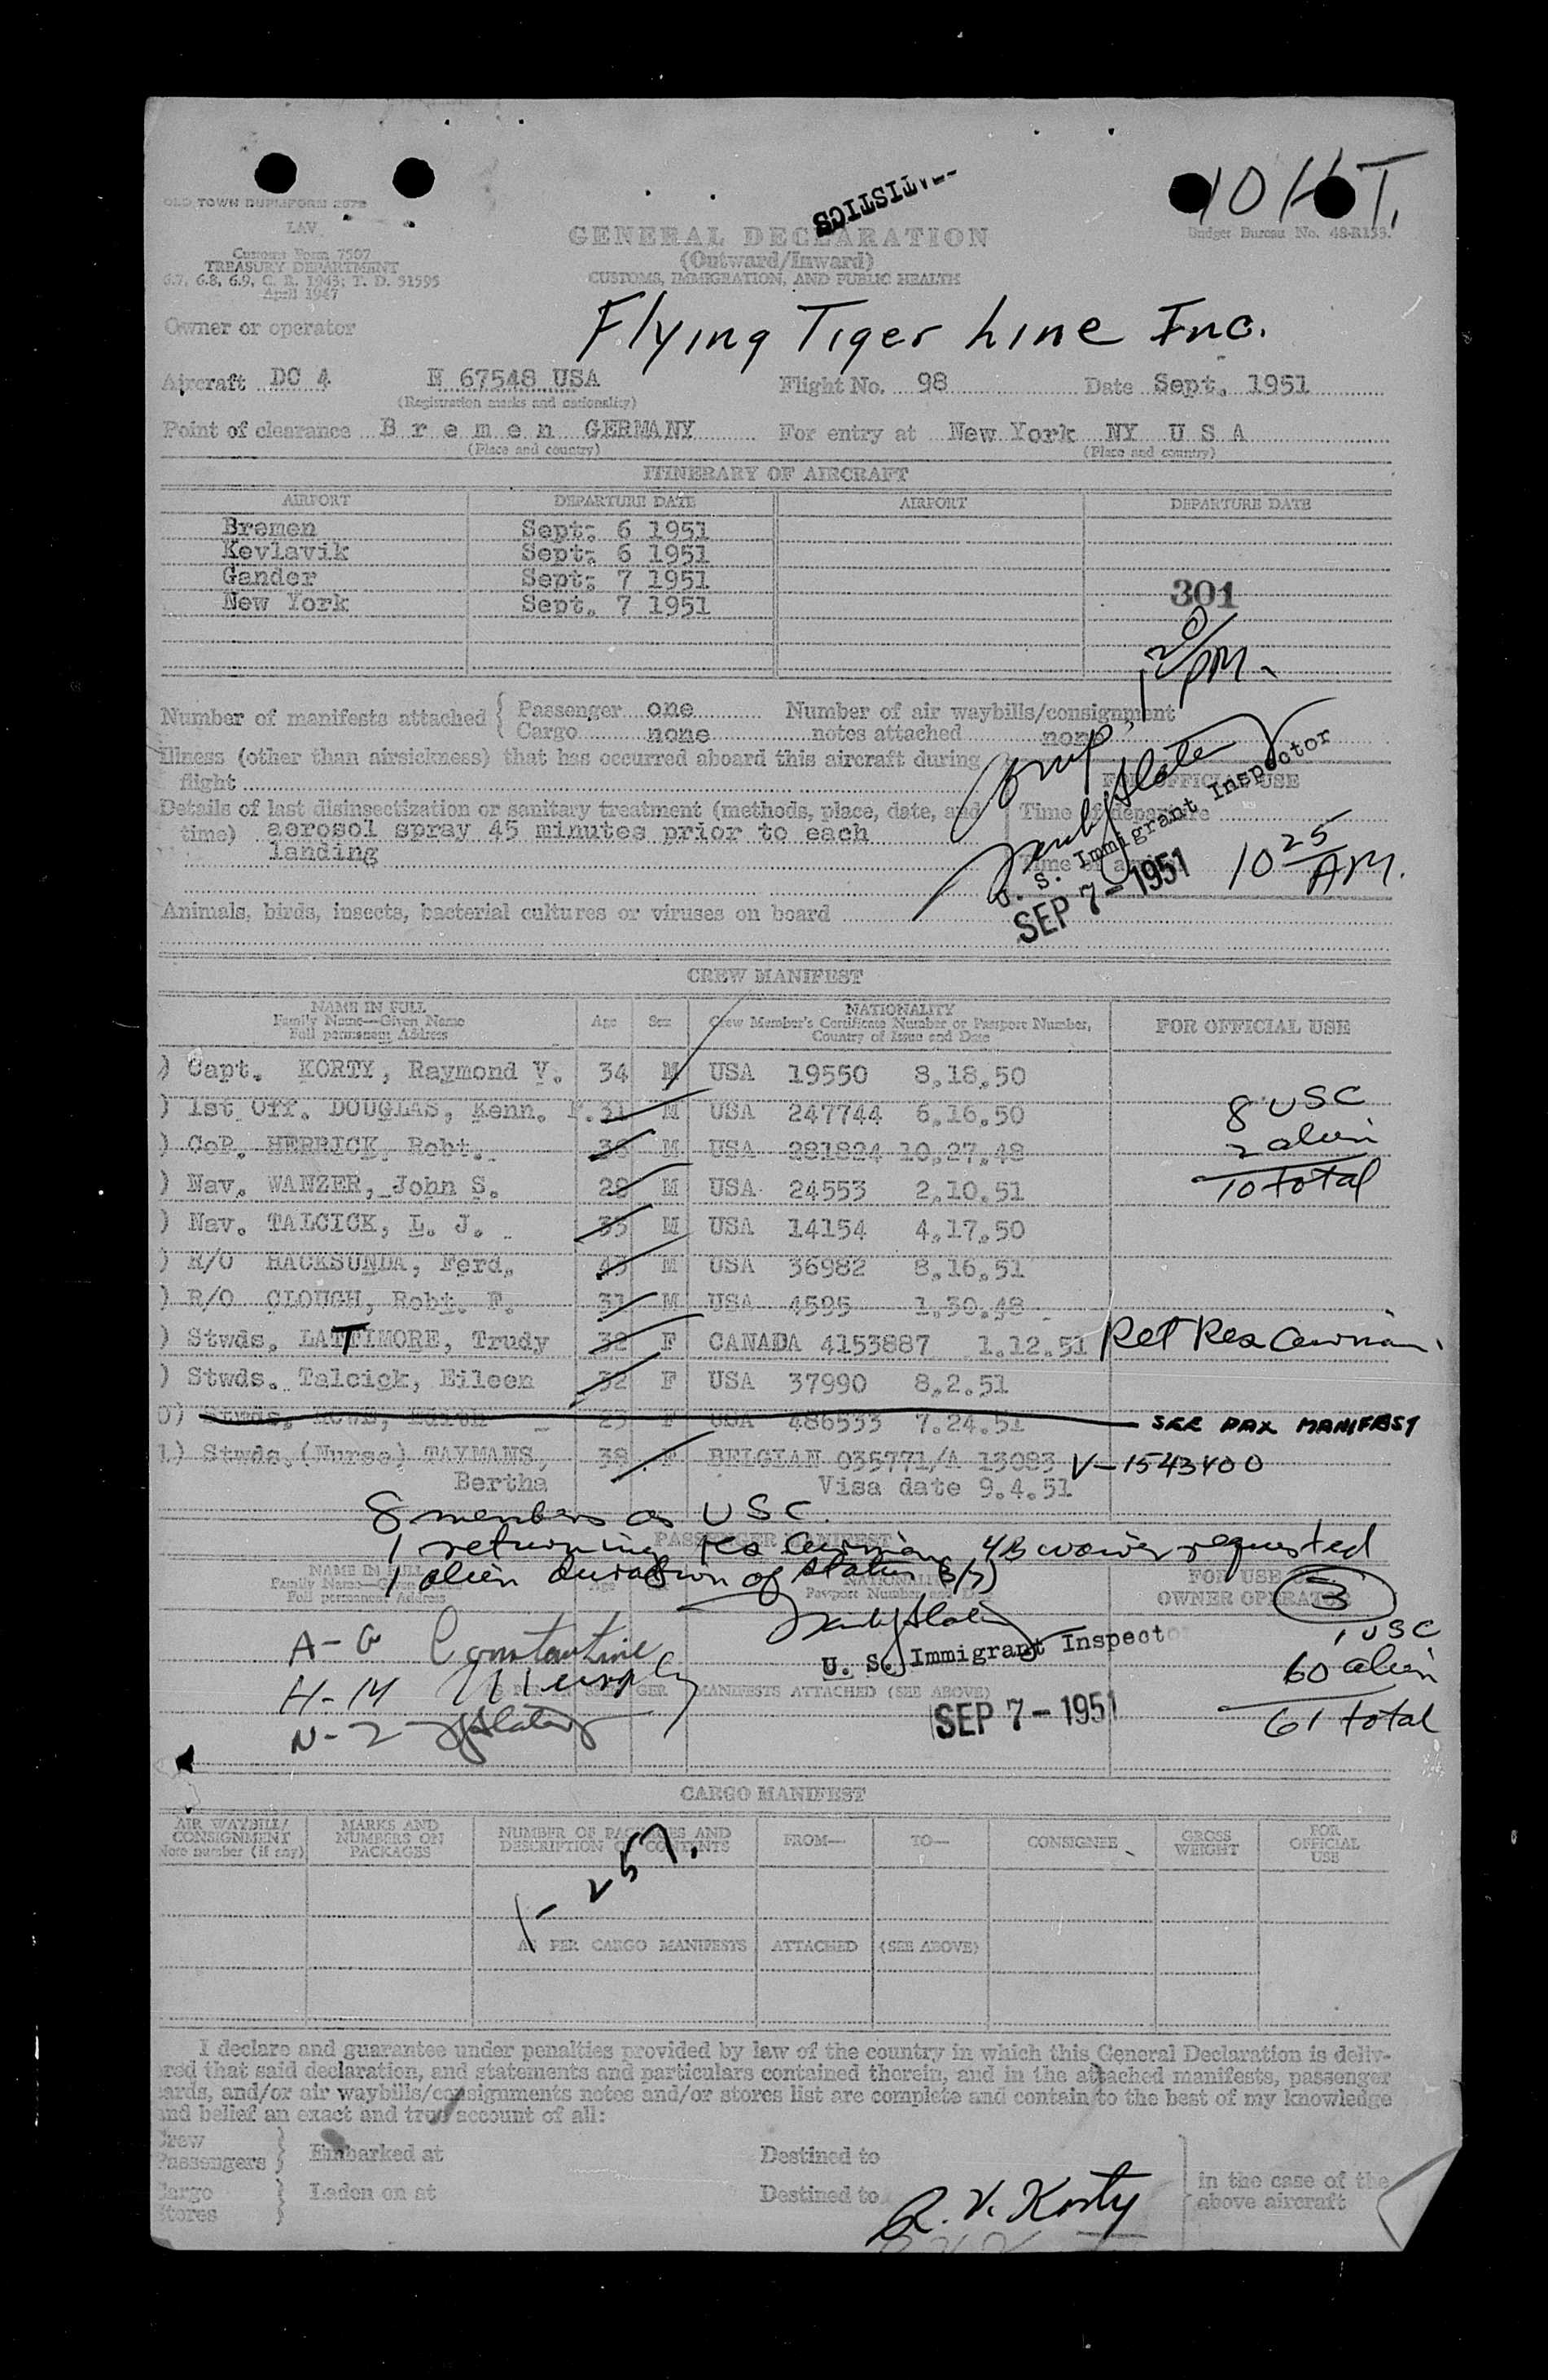 10
T.
OLD TOWN DUPLIFORM
LAV
STATISTICS
GENERAL DECLARATION
Budget Bureau No. 48-R133.
(Outward/Inward)
Customs Form 7507
TREASURY DEPARTMENT
CUSTOMS, IMMIGRATION, AND PUBLIC HEALTH
6.7, 6.8, 6.9, C. R. 1943; T. D. 51595
April 1947
Owner or operator
Flying Tiger Line Inc.
Aircraft DC 4 N 67548 USA Flight No. 98 Date Sept. 1951
(Registration marks and nationality)
Point of clearance B r e m e n GERMANY For entry at New York NY U S A
(Place and country) (Place and country)
ITINERARY OF AIRCRAFT
AIRPORT DEPARTURE DATE AIRPORT DEPARTURE DATE
Bremen Sept. 6 1951
Kevlavik Sept. 6 1951
Gander Sept. 7 1951
New York Sept. 7 1951
301
Comp. 1 20/PM.
Number of manifests attached { Passenger one Number of air waybills/consignment
Cargo none notes attached none
Illness (other than airsickness) that has occurred aboard this aircraft during
flight
FOR OFFICIAL USE
Details of last disinsectization or sanitary treatment (methods, place, date, and
time) aerosol spray 45 minutes prior to each
landing
Time of departure
Time of arrival 10 25 AM.
U. S. Immigrant Inspector
SEP 7 - 1951
Animals, birds, insects, bacterial cultures or viruses on board
CREW MANIFEST
NAME IN FULL
Family Name—Given Name
Full permanent Address
Age Sex
NATIONALITY
Crew Member's Certificate Number or Passport Number,
Country of Issue and Date
FOR OFFICIAL USE
) Capt. KORTY, Raymond V. 34 M USA 19550 8.18.50
) 1st Off. DOUGLAS, Kenn. F. 31 M USA 247744 6.16.50
) CoP. HERRICK, Robt. M USA 281824 10.27.48
) Nav. WANZER, John S. 28 M USA 24553 2.10.51
) Nav. TALCICK, L. J. 35 M USA 14154 4.17.50
) R/O HACKSUNDA, Ferd. 43 M USA 36982 8.16.51
) R/O CLOUGH, Robt. F. 31 M USA 4595 1.30.48
8 USC
2 alien
10 total
) Stwds. LATTIMORE, Trudy 32 F CANADA 4153887 1.12.51 Ret Res
) Stwds. Talcick, Eileen 32 F USA 37990 8.2.51
0) Stwds. Edith F USA 486533 7.24.51 SEE PAX MANIFEST
1) Stwds.(Nurse) TAYMANS, 38 F BELGIAN 035771/A 13083 V-1543400
Bertha Visa date 9.4.51
8 members as USC.
PASSENGER MANIFEST
1 returning Res 4B waiver requested
1 alien duration of status 3(5)
NAME IN FULL
Family Name—Given Name
Full permanent Address
Age
NATIONALITY
Passport Number and
FOR USE OF
OWNER OPERATOR
3
1 USC
60 alien
61 total
A-G Constantine
H-M Murphy
N-Z Slater
U. S. Immigrant Inspecto
AS PER PASSENGER MANIFESTS ATTACHED (SEE ABOVE)
SEP 7 - 1951
CARGO MANIFEST
AIR WAYBILL/
CONSIGNMENT
Note number (if any)
MARKS AND
NUMBERS ON
PACKAGES
NUMBER OF PACKAGES AND
DESCRIPTION OF CONTENTS
FROM—
TO—
CONSIGNEE
GROSS
WEIGHT
FOR
OFFICIAL
USE
1- 257.
AS PER CARGO MANIFESTS ATTACHED (SEE ABOVE)
I declare and guarantee under penalties provided by law of the country in which this General Declaration is deliv-
ered that said declaration, and statements and particulars contained therein, and in the attached manifests, passenger
cards, and/or air waybills/consignments notes and/or stores list are complete and contain to the best of my knowledge
and belief an exact and true account of all:
Crew
Passengers } Embarked at Destined to
Cargo
Stores } Laden on at Destined to
in the case of the
above aircraft
R. V. Korty